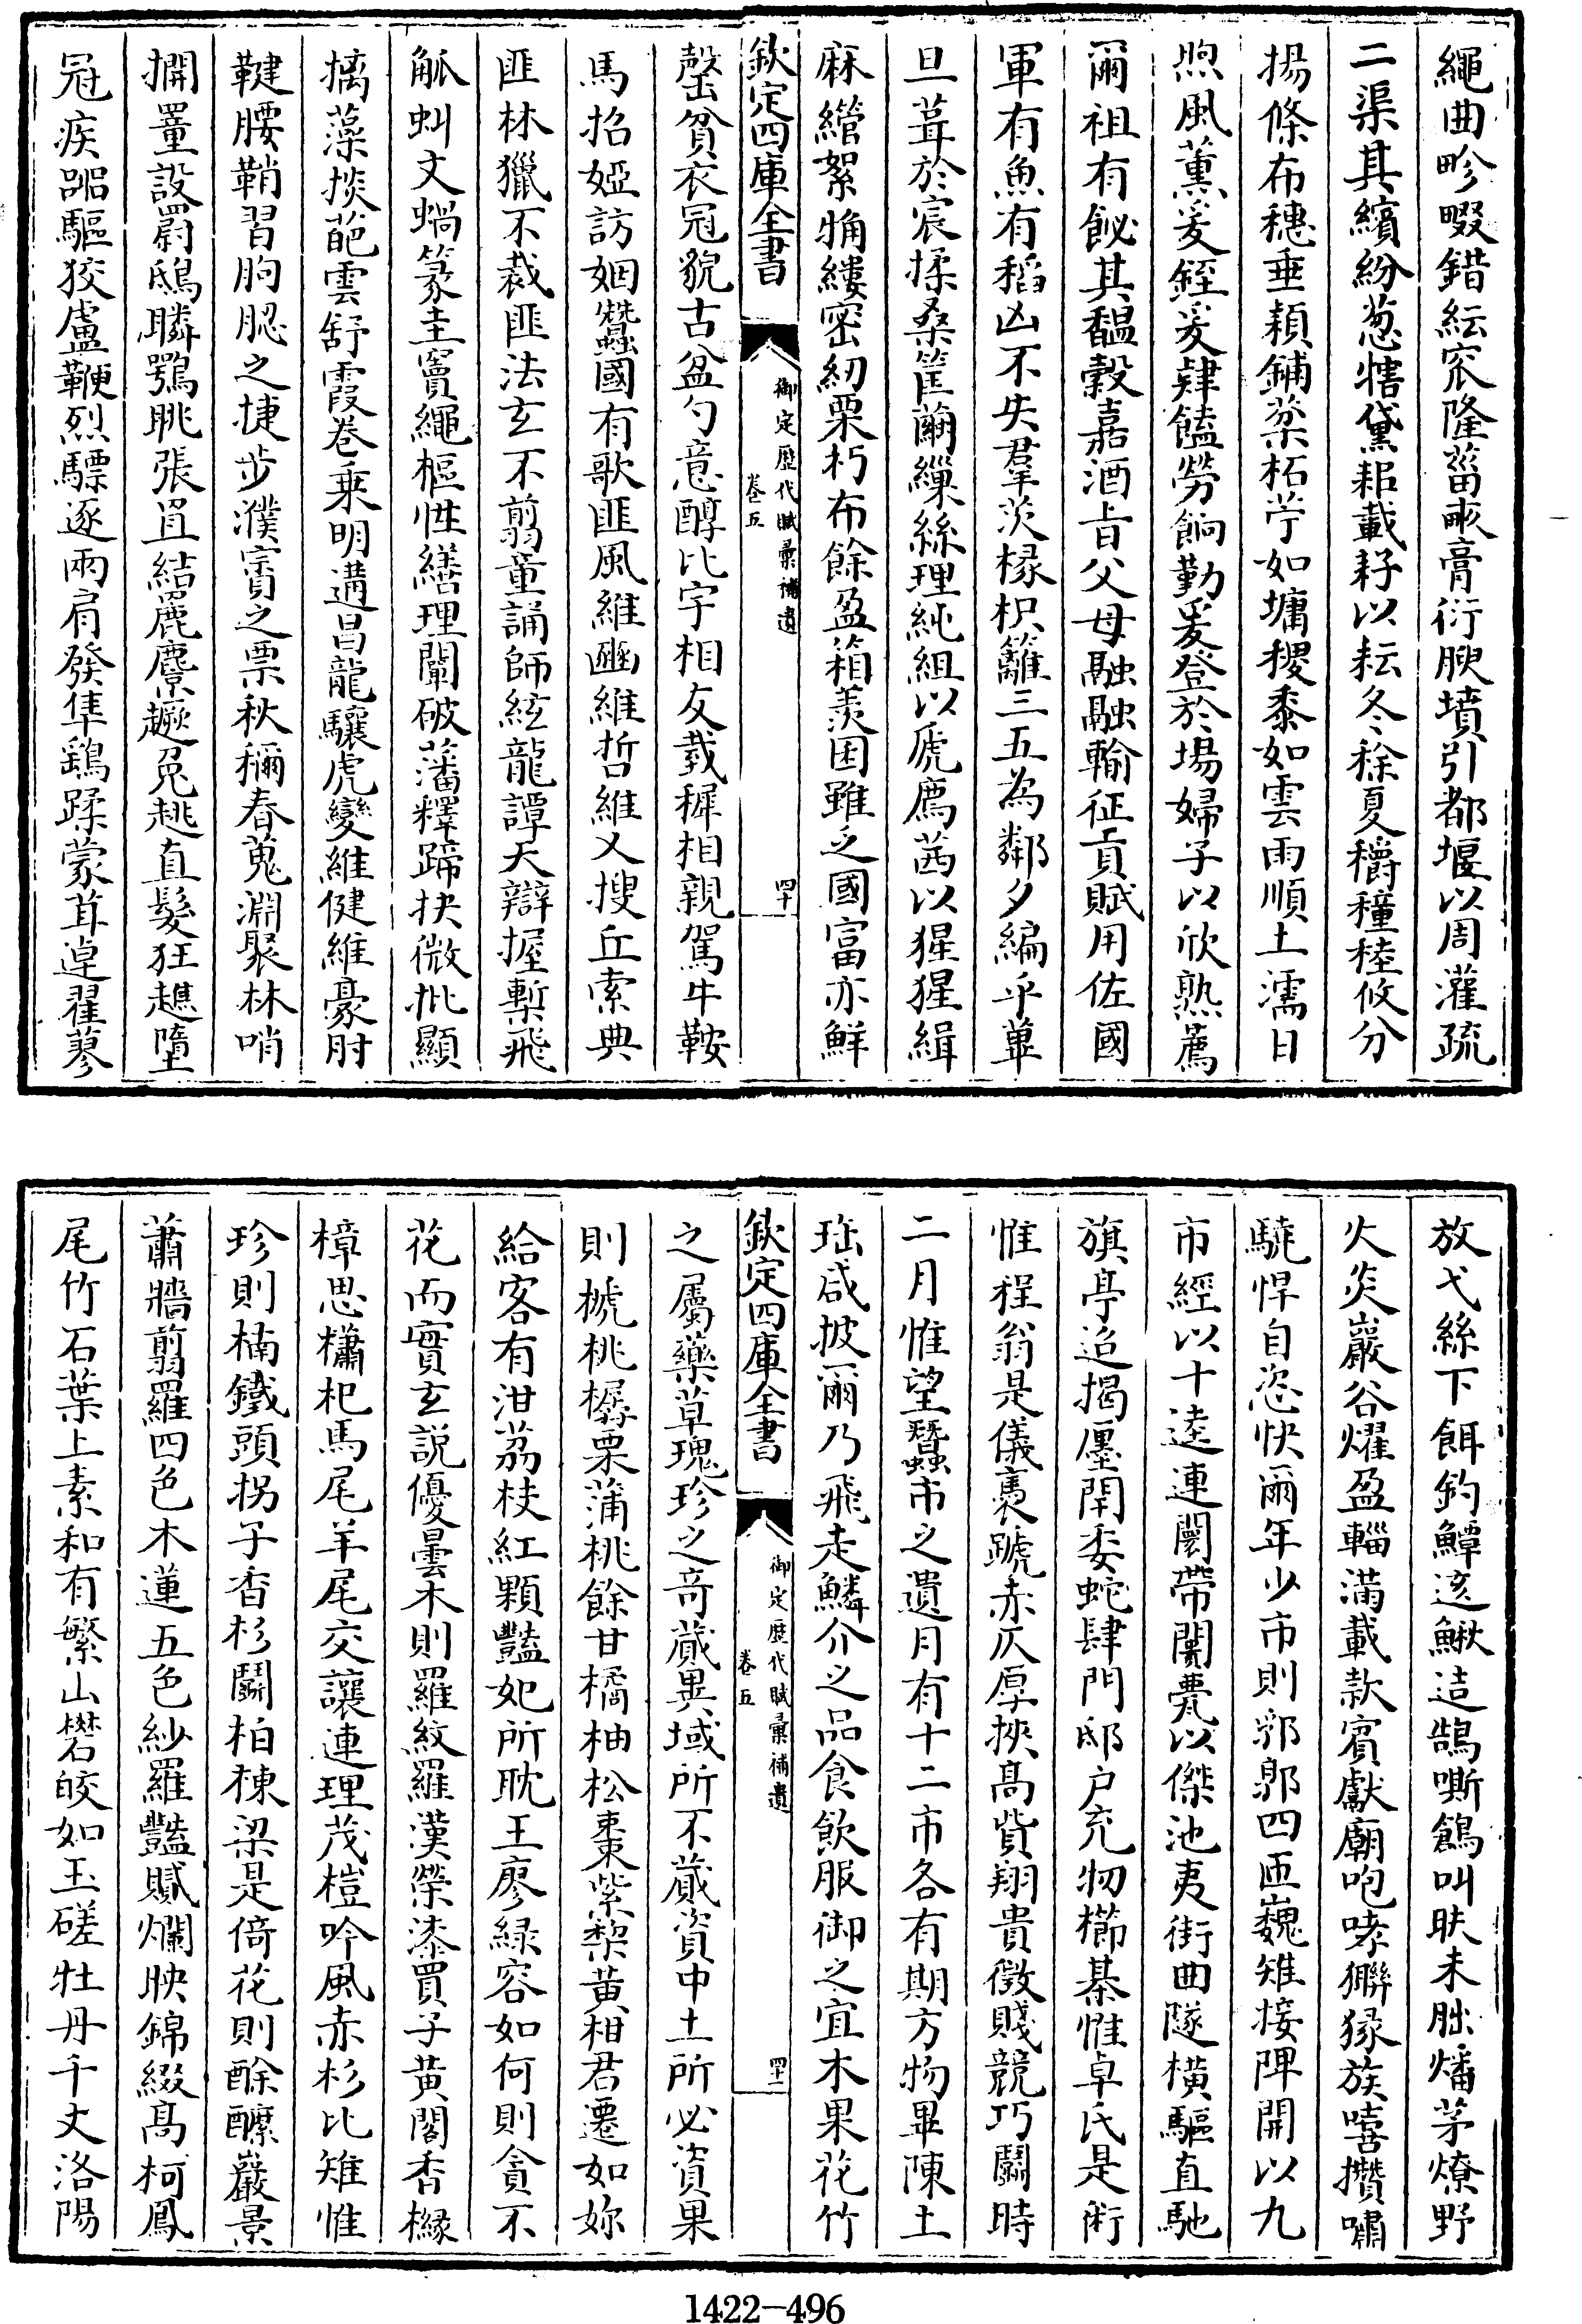 繩曲畛畷錯紜窊隆菑畞膏衍腴墳引都堰以周灌疏
二渠其繽紛葱犗黛耜載耔以耘冬稌夏穱穜稑攸分
揚條布穗垂穎鋪棻柘苧如墉稷黍如雲雨順土濡日
煦風薰爰銍爰肆饁勞餉勤爰登於場婦子以欣熟薦
爾祖有飶其馧穀嘉酒旨父母融融輸征貢賦用佐國
軍有魚有稻凶不失羣茨椽枳籬三五為鄰夕編乎葟
旦葺於宸揉桑筐繭繅絲理純組以虒廌茜以猩猩緝
麻繒絮觕縷密紉粟朽布餘盈箱羨囷雖乏國富亦鮮
欽定四庫全書
御定歷代賦彙補遺
卷五
四十
罄貧衣冠貌古盆勺意醇比宇相友栽穉相親駕牛鞍
馬招婭訪姻蠶國有歌匪風維豳維哲維乂搜丘索典
匪林獵不裁匪法玄不翦童誦師絃龍譚天辯握槧飛
觚虯文蝸篆圭竇繩樞性繕理闡破藩釋蹄抉微批顯
摛藻掞葩雲舒霞卷乘明遘昌龍驤虎變維健維豪肘
鞬腰鞘習朐䏰之捷步濮賨之票秋獮春蒐淵聚林哨
擱罿設罻鴟瞵鶚眺張罝結麗麖蹶兔趒直髮狂趭墮
冠疾嘂驅狡盧鞭烈驃逐兩肩發隼鷂蹂蒙茸逴翟蓼
放弋絲下餌釣鱏遮鰍迼鵠嘶鶬叫眹未朏燔茅燎野
火炎巖谷燿盈輜滿載款賓獻廟咆哮獬猭族嘻攢嘯
驍悍自恣快爾年少市則郛郭四匝巍雉接陴開以九
市經以十逵連闤帶闠甍以傑池夷街曲隧橫驅直馳
旗亭迢揭㕓閈委蛇肆門邸户充牣櫛棊惟卓氏是術
惟程翁是儀裹蹏赤仄厚挾高貲翔貴徵賤競巧鬬時
二月惟望蠶市之遺月有十二市各有期方物畢陳土
珤咸披爾乃飛走鱗介之品食飲服御之宜木果花竹
欽定四庫全書
御定歷代賦彙補遺
卷五
四十一
之屬藥草瑰珍之奇藏異域所不藏資中土所必資果
則榹桃樼栗蒲桃餘甘橘柚松棗紫棃黄柑君遷如妳
給客有泔荔枝紅顆豔妃所耽王廖緑容如何則貪不
花而實玄説優曇木則羅紋羅漢榮漆買子黄閣香櫞
樟思櫹杞馬尾羊尾交讓連理茂榿吟風赤杉比雉惟
珍則楠鐵頭拐子杳杉鬬柏棟梁是倚花則酴醾巖景
蕭牆翦羅四色木蓮五色紗羅豔贙爛映錦綴高柯鳳
尾竹石葉上素和有繁山礬皎如玉磋牡丹千丈洛陽
1422-496